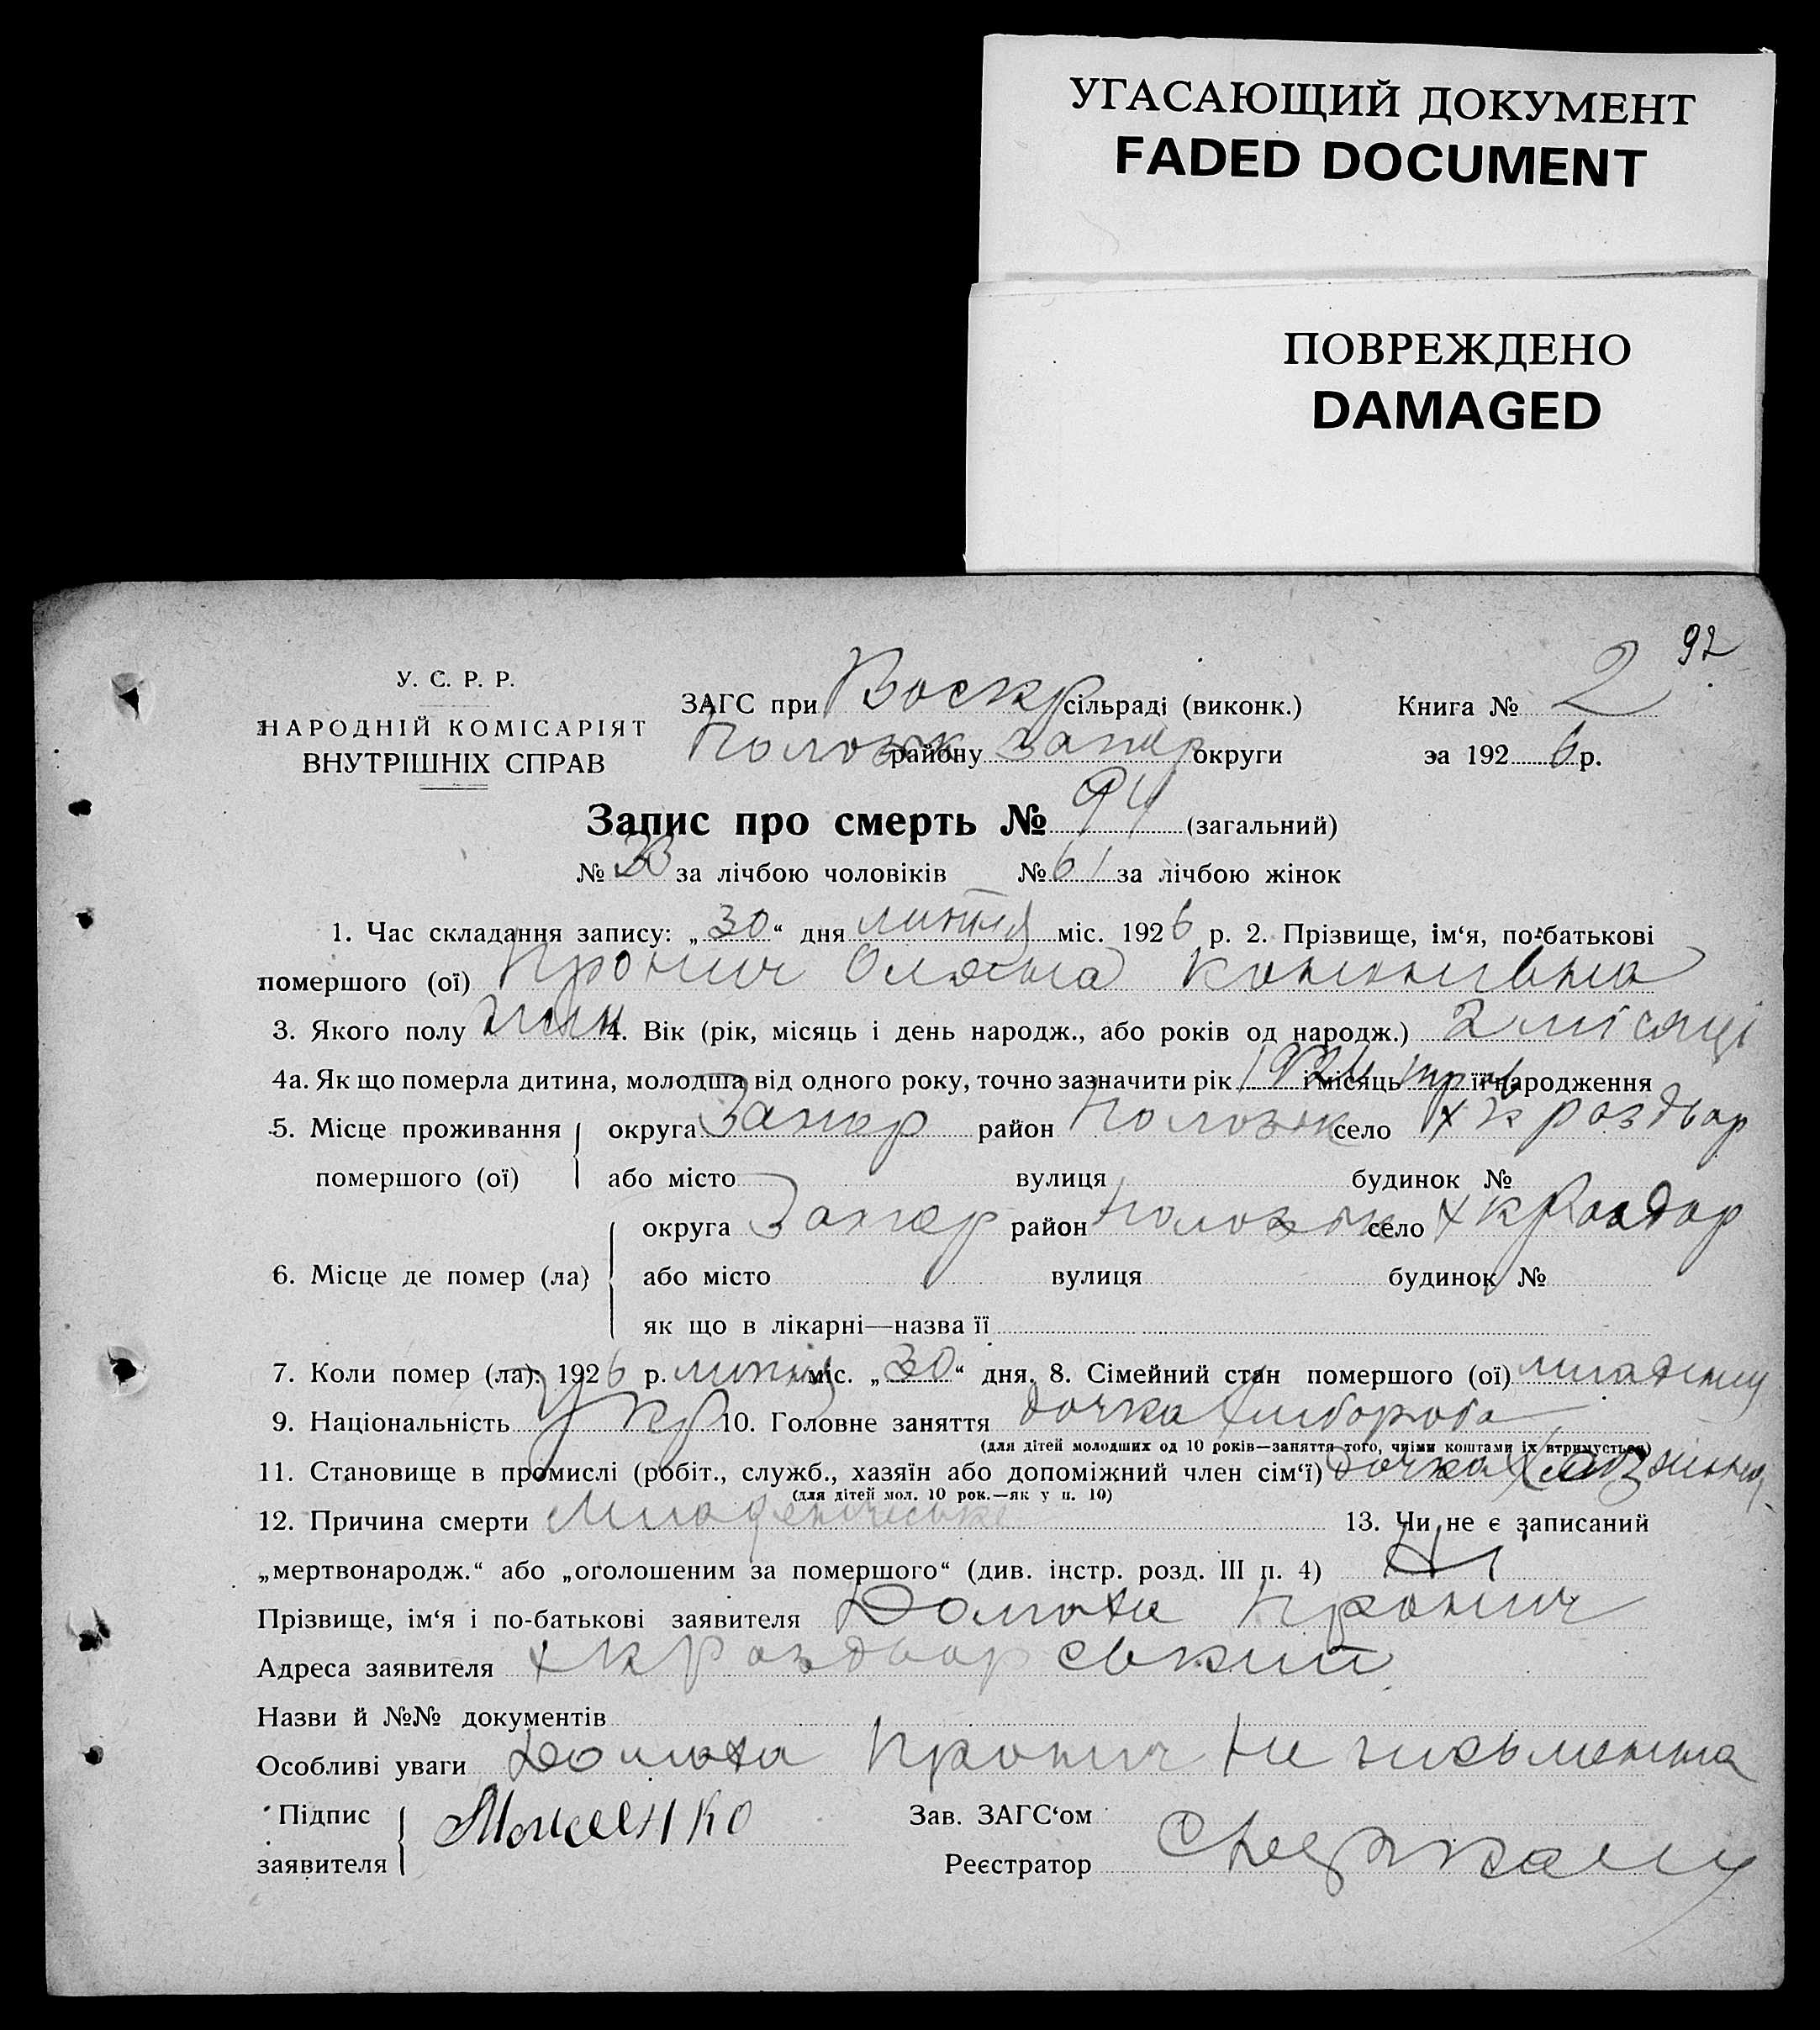 УГАСАЮЩИЙ ДОКУМЕНТ
FADED DOCUMENT
ПОВРЕЖДЕНО
DAMAGED
92
У. С. Р. Р.
НАРОДНІЙ КОМІСАРІЯТ
ВНУТРІШНІХ СПРАВ
ЗАГС при Воскр сільраді (виконк.)
району Запор округи
Книга № 2
за 1926 р.
Запис про смерть № 94 (загальний)
№ за лічбою чоловіків № 61 за лічбою жінок
1. Час складання запису: „30“ дня липня міс. 1926 р. 2. Прізвище, ім‘я, по-батькові
помершого (ої) Пронич
3. Якого полу 4. Вік (рік, місяць і день народж., або років од народж.) 2 місяці
4а. Як що померла дитина, молодша від одного року, точно зазначити рік 1926 і місяць її народження
5. Місце проживання помершого (ої) округа Запор район село х Кроздвор
або місто вулиця будинок №
6. Місце де помер (ла) округа Запор район село х
або місто вулиця будинок №
як що в лікарні—назва її
7. Коли помер (ла): 1926 р. липня міс. „30“ дня. 8. Сімейний стан помершого (ої)
9. Національність Укр 10. Головне заняття дочка хлібороба
(для дітей молодших од 10 років—заняття того, чиїми коштами їх втримується)
11. Становище в промислі (робіт., служб., хазяїн або допоміжний член сім‘ї) дочка
(для дітей мол. 10 рок.—як у п. 10)
12. Причина смерти 13. Чи не є записаний
„мертвонародж.“ або „оголошеним за помершого“ (див. інстр. розд. III п. 4) Ні
Прізвище, ім‘я і по-батькові заявителя Домаха Пронич
Адреса заявителя х Кроздворський
Назви й №№ документів
Особливі уваги Домаха Пронич не письменна
Підпис заявителя
Зав. ЗАГС‘ом
Реєстратор